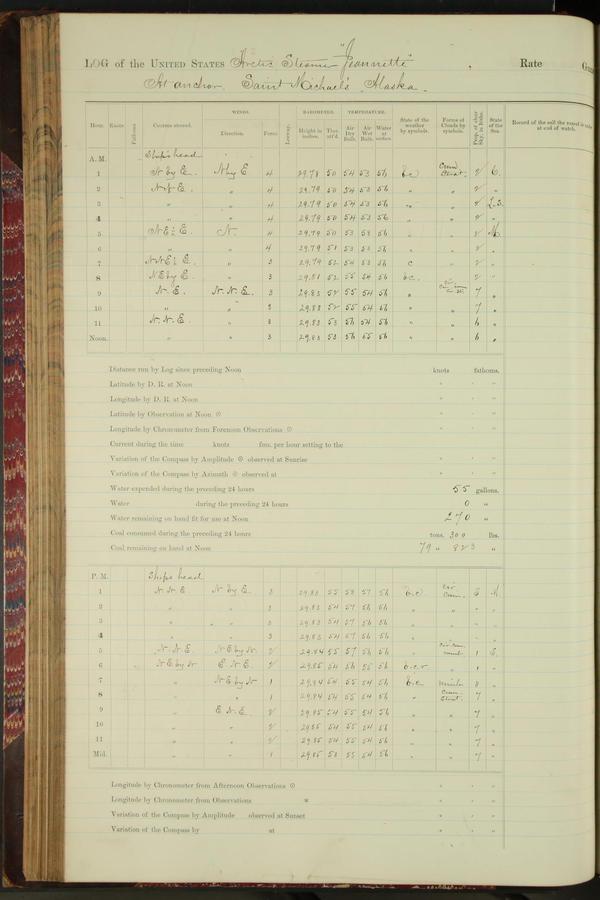 LOG of the UNITED STATES Arctic Steamer "Jeannette", Rate
At anchor Saint Michael's, Alaska.
WINDS. BAROMETER. TEMPERATURE.
Hour. Knots. Fathoms. Courses steered. Direction. Force. Leeway. Height in inches. Ther. att'd. Air Dry Bulb. Air Wet Bulb. Water at surface. State of the weather by symbols. Forms of Clouds by symbols. Prop. of clear Sky, in 10ths. State of the Sea. Record of the sail the vessel is under at end of watch.
A. M. Ship's head
1 N by E. N by E 4 29.78 50 54 53 56 b.c
2 " 4 29.79 50 54 53 56 " " "
3 " " 4 29.79 50 54 53 56 " "
4 " " 4 29.79 50 54 53 56 " " "
5 N. 4 29.79 50 53 53 56 " "
6 " " 4 29.79 51 53 53 56 " " "
7 " 3 29.79 52 54 53 56 c " "
8 NE by E " 3 29.81 52 55 54 56 b.c. " "
9 N.E. N.N.E. 3 29.83 52 55 54 56 " 7 "
10 " " 3 29.83 52 55 54 56 " " 7 "
11 N.N.E. " 3 29.83 53 56 54 56 " " 6 "
Noon. " " 3 29.83 53 56 55 56 " " 6 "
Distance run by Log since preceding Noon knots fathoms.
Latitude by D. R. at Noon " "
Longitude by D. R. at Noon " "
Latitude by Observation at Noon ☉ " "
Longitude by Chronometer from Forenoon Observations ☉ " "
Current during the time knots fms. per hour setting to the
Variation of the Compass by Amplitude ☉ observed at Sunrise " "
Variation of the Compass by Azimuth ☉ observed at " "
Water expended during the preceding 24 hours 55 gallons.
Water during the preceding 24 hours 0 "
Water remaining on hand fit for use at Noon 270 "
Coal consumed during the preceding 24 hours tons, 300 lbs.
Coal remaining on hand at Noon 79 " 823 "
P. M. Ship's head
1 N.N.E N by E. 3 29.83 55 58 57 56 b.c
2 " " 3 29.83 54 57 56 56 " " " "
3 " " 3 29.83 54 57 56 56 " " " "
4 " " 3 29.83 54 57 56 56 " " " "
5 N.N.E. N E by N. 2 29.84 55 57 56 56 " 1
6 NE by N E.N.E. 2 29.85 54 56 55 56 b.c.r " 1 "
7 " N E by N 1 29.84 54 55 54 56 b.c. "
8 " " 1 29.84 54 55 54 56 " 7 "
9 " E.N.E. 2 29.85 54 55 54 56 " " 7 "
10 " " 2 29.85 54 55 54 56 " " 7 "
11 " " 2 29.85 54 55 54 56 " " 7 "
Mid. " " 1 29.85 53 55 54 56 " " 7 "
Longitude by Chronometer from Afternoon Observations ☉ " "
Longitude by Chronometer from Observations * " "
Variation of the Compass by Amplitude observed at Sunset " "
Variation of the Compass by at " "